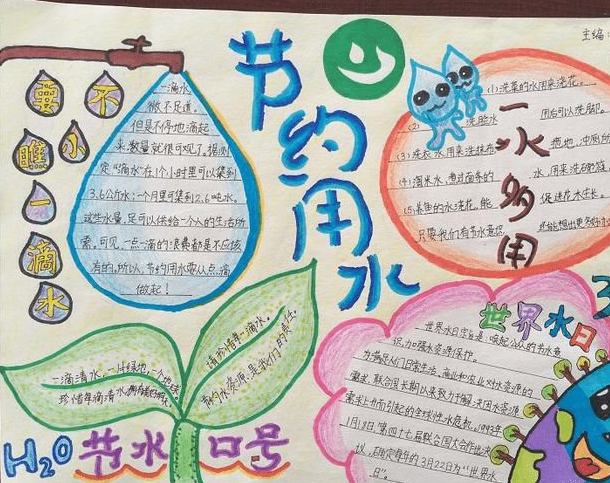 主编:
节约用水
不要小瞧一滴水
一滴水,
微不足道。
但是不停地滴起
来,数量就很可观了。据测
定“滴水”在1个小时里可以集到
3.6公斤水;一个月里可集到2.6吨水。
这些水量,足可以供给一个人的生活所
需。可见,一点一滴的浪费都是不应该
有的。所以,节约用水要从点滴
做起!
一水多用
(1)洗菜的水用来浇花。
(2) 洗脸水 用后可以洗脚。
(3)洗衣水,用来洗抹布、 拖地、冲厕所
(4)淘米水,煮过面条的 水,用来洗碗筷
(5)养鱼的水浇花,能 促进花木生长。
只要我们有节水意识
请珍惜每一滴水。
节约水资源,是我们的责任。
一滴清水,一片绿地,一个地球。
珍惜每滴清水,
H2O节水口号
世界水日
世界水日宗旨是:唤起公众的节水意
识,加强水资源保护。
为满足人们日常生活、商业和农业对水资源的
需求,联合国长期以来致力于解决因水资源
需求上升而引起的全球性水危机。1993年
1月18日,第四十七届联合国大会作出决
议,确定每年的3月22日为“世界水
日”。